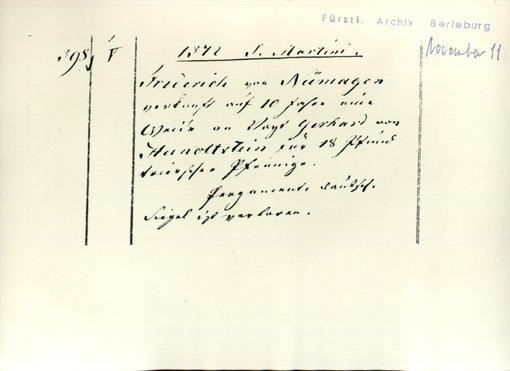 Fürstl. Archiv Berleburg
November 11
398, V 1372 S. Martini.
Friderich von Nümagen
verkauft auf 10 Jahre eine
an Vogt Gerhard von
Hunoltstein für 18 Pfund
trierscher Pfennige.
Pergamente deutsch.
Siegel ist verloren.